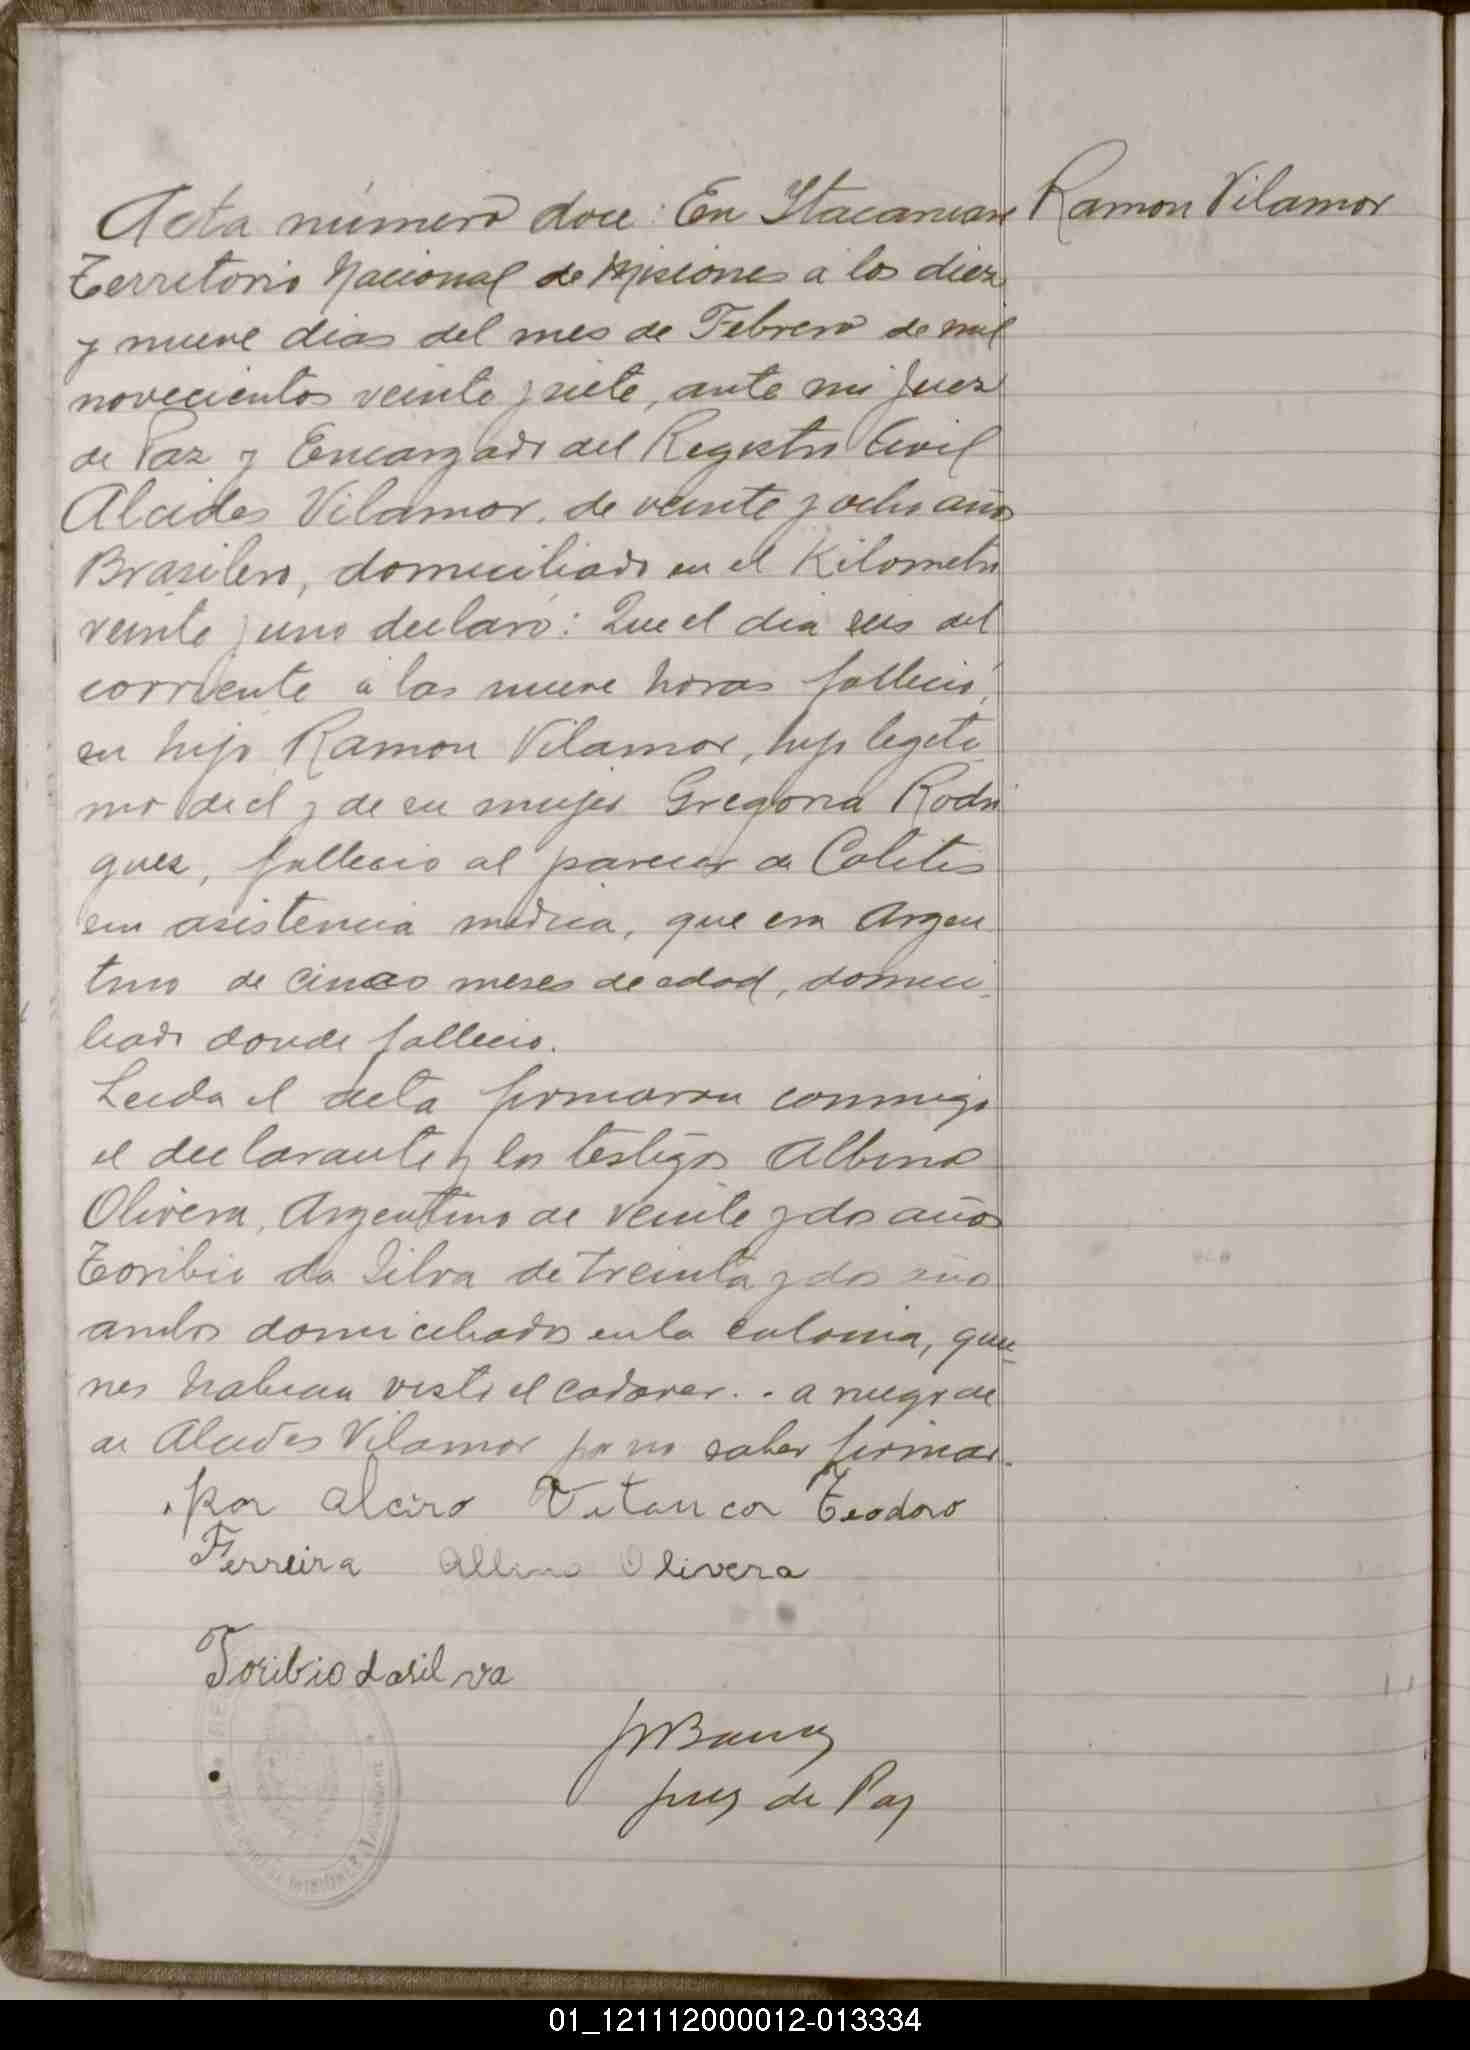 Ramon Vilamor
Acta número doce: En Itacaruaré
Territorio Nacional de Misiones a los diez
y nueve dias del mes de Febrero de mil
novecientos veinte y siete, ante mi Juez
de Paz y Encargado del Registro Civil
Alcides Vilamor, de veinte y ocho años
Brasilero, domiciliado en el Kilometro
veinte y uno declaró: Que el dia seis del
corriente a las nueve horas falleció,
su hijo Ramon Vilamor, hijo legiti
mo de el y de su mujer Gregoria Rodri
guez, fallecio al parecer de Colitis
sin asistencia medica, que era Argen
tino de cinco meses de edad, domici-
liado donde fallecio.
Leida el acta firmaron conmigo
el declarante y los testigos Albino
Olivera, Argentino de veinte y dos años
Toribio da Silva de treinta y dos años
ambos domiciliados en la colonia, quie-
nes habian visto el cadaver. - a ruego de
de Alcides Vilamor por no saber firmar.
por Alciro Vitancor Teodoro
Ferreira Albino Olivera
Toribio dasilva
Juez de Paz
01_121112000012-013334